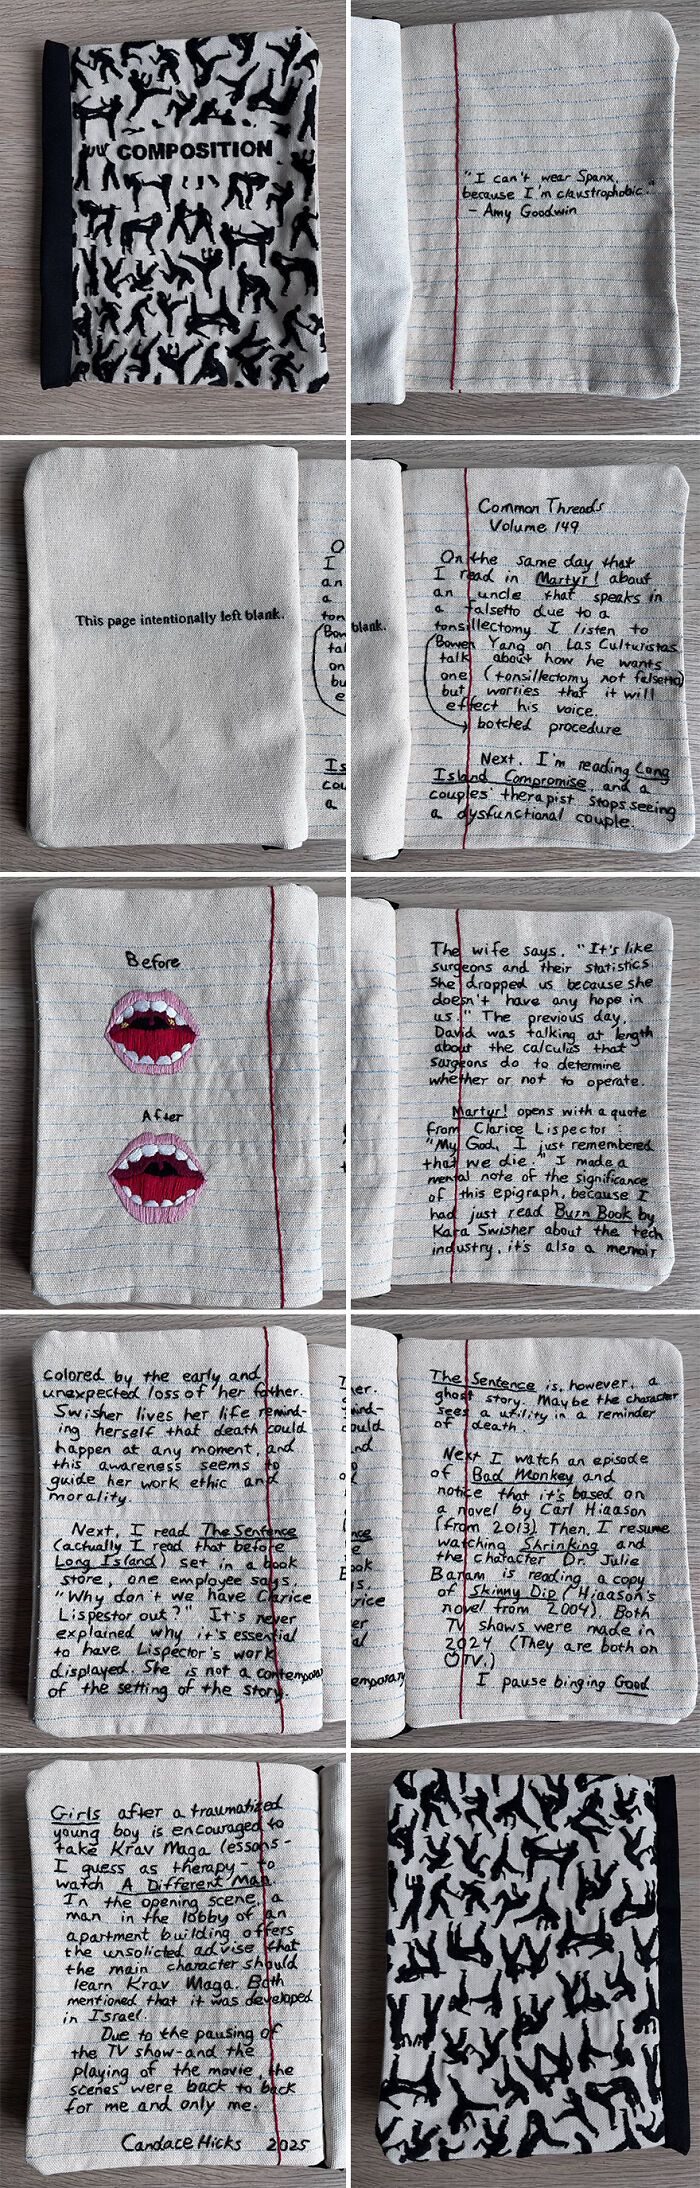 COMPOSITION
"I can't wear Spanx,
because I'm claustrophobic."
- Amy Goodwin
This page intentionally left blank.
O
I
an
a
ton
(Bow
tal
on
bu
e
Is
cou
a
blank.
Common Threads
Volume 149
On the same day that
I read in Martyr! about
an uncle that speaks in
a falsetto due to a
tonsillectomy I listen to
Bowen Yang on Las Culturistas
talk about how he wants
one (tonsillectomy not falsetto)
but worries that it will
effect his voice.
botched procedure
Next, I'm reading Long
Island Compromise, and a
couples' therapist stops seeing
a dysfunctional couple.
Before
After
The wife says, "It's like
surgeons and their statistics.
She dropped us because she
doesn't have any hope in
us." The previous day,
David was talking at length
about the calculus that
surgeons do to determine
whether or not to operate.
Martyr! opens with a quote
from Clarice Lispector:
"My God, I just remembered
that we die." I made a
mental note of the significance
of this epigraph, because I
had just read Burn Book by
Kara Swisher about the tech
industry, it's also a memoir
colored by the early and
unexpected loss of her father.
Swisher lives her life remind-
ing herself that death could
happen at any moment, and
this awareness seems to
guide her work ethic and
morality.
Next, I read The Sentence
(actually I read that before
Long Island) set in a book
store, one employee says,
"Why don't we have Clarice
Lispestor out?" It's never
explained why it's essential
to have Lispector's work
displayed. She is not a contemporary
of the setting of the story.
The Sentence is, however, a
ghost story. Maybe the character
sees a utility in a reminder
of death.
Next I watch an episode
of Bad Monkey and
notice that it's based on
a novel by Carl Hiaason
(from 2013). Then, I resume
watching Shrinking and
the character Dr. Julie
Baram is reading a copy
of Skinny Dip (Hiaason's
novel from 2004). Both
TV shows were made in
2024 (They are both on
TV.)
I pause binging Good
Girls after a traumatized
young boy is encouraged to
take Krav Maga lessons -
I guess as therapy - to
watch A Different Man.
In the opening scene, a
man in the lobby of an
apartment building offers
the unsolicted advise that
the main character should
learn Krav Maga. Both
mentioned that it was developed
in Israel.
Due to the pausing of
the TV show and the
playing of the movie, the
scenes were back to back
for me and only me.
Candace Hicks 2025